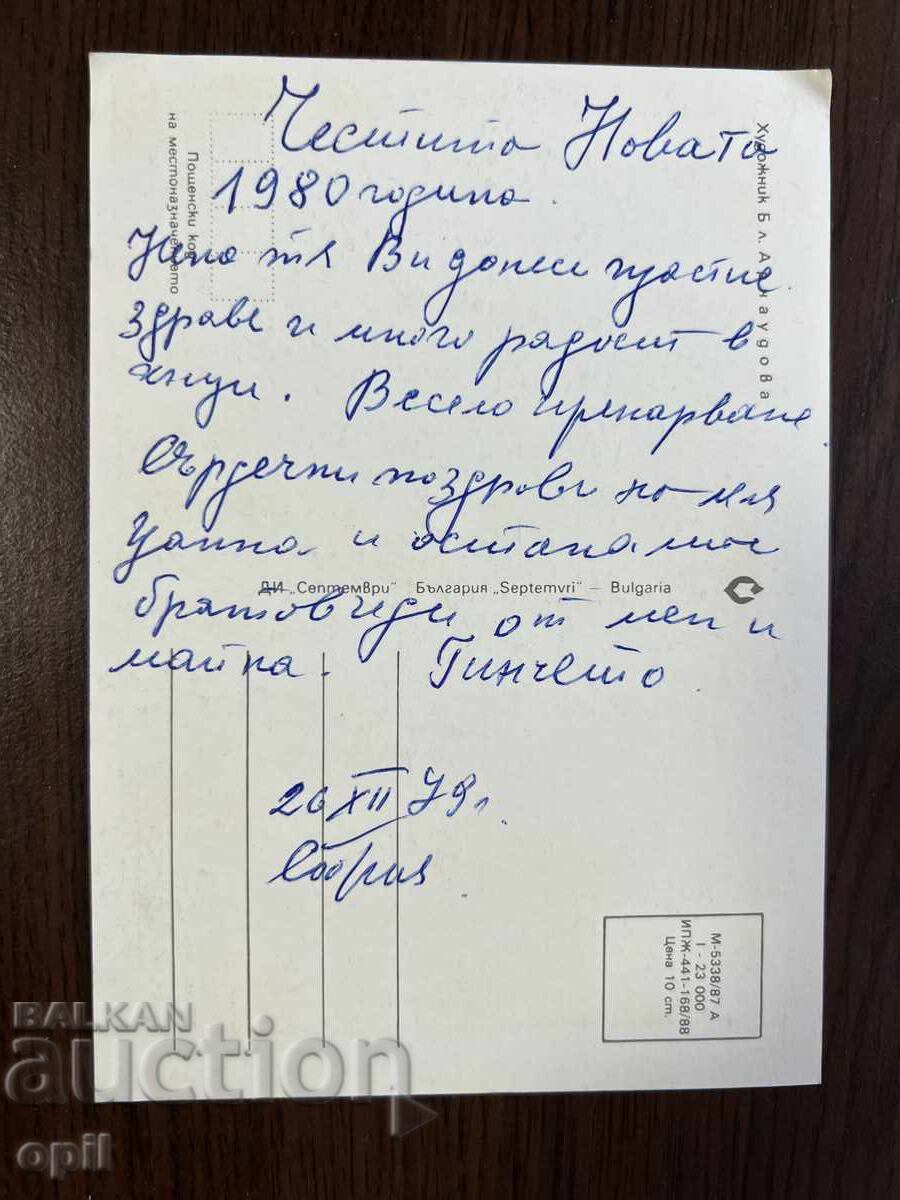 Честита Новата
1980 година
Нека тя Ви донесе щастие
здраве и много радост в
Весело прекарване
Сърдечни поздрави на
и останалите
братовчеди от мен и
майка. Гинчето
26 XII 79 г.
София
Пощенски код
на местоназначението
Художник Бл. Арнаудова
ДИ „Септември" България „Septemvri" – Bulgaria
М-5338/87 А
I - 23 000
ИПЖ-441-168/88
Цена 10 ст.
BALKAN
auction
opil